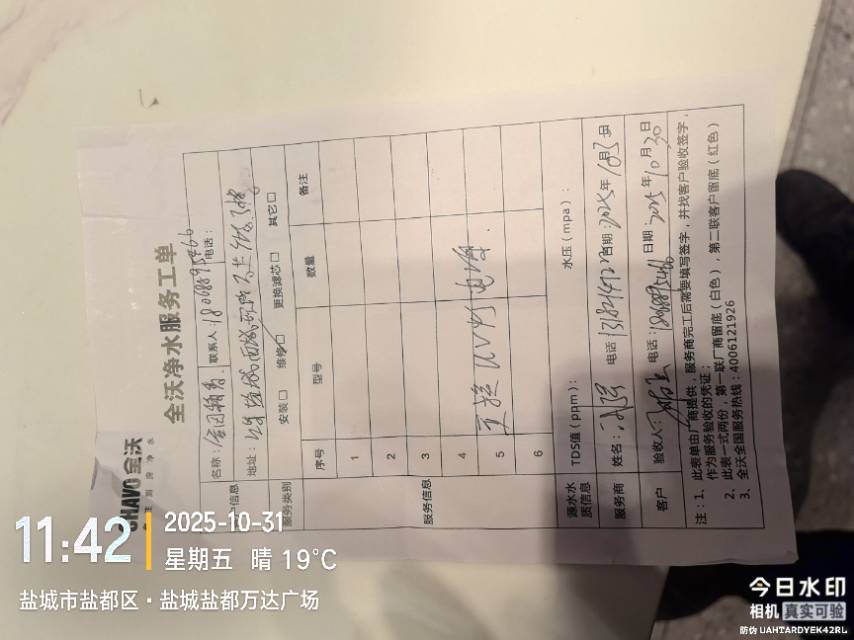 全沃
全沃净水服务工单
名称： 联系人：18068895466 电话：
地址：
服务类别 安装□ 维修□ 更换滤芯□ 其它□
服务信息
序号 型号 数量 备注
1
2
3
4
5 更换UV灯电源
6
源水水质信息 TDS值（ppm）： 水压（mpa）：
服务商 姓名： 电话 日期：2025年10月 日
客户 验收人： 电话：18068895466 日期 2025年10月30日
注：1、此表单由厂商提供，服务商完工后需要填写签字，并找客户验收签字，
作为服务验收的凭证；
2、此表一式两份，第一联厂商留底（白色），第二联客户留底（红色）
3、全沃全国服务热线：4006121926
11:42
2025-10-31
星期五 晴 19°C
盐城市盐都区·盐城盐都万达广场
今日水印
相机 真实可验
防伪 UAHTARDYEK42RL